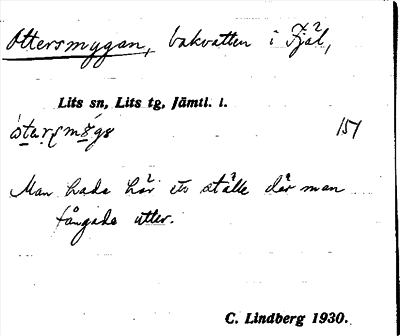 Ottersmygan, bakvatten i Fjäl,
Lits sn, Lits tg, Jämtl. l.
151
Man hade här ett ställe där man
fångade utter.
C. Lindberg 1930.